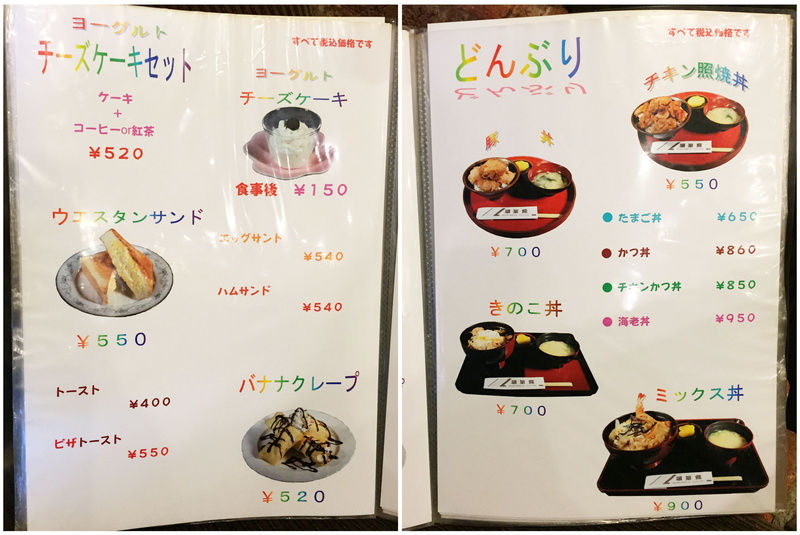 ヨーグルト
チーズケーキセット
ケーキ
+
コーヒーor紅茶
￥520
すべて税込価格です
ヨーグルト
チーズケーキ
食事後 ￥150
ウエスタンサンド
￥550
エッグサンド
￥540
ハムサンド
￥540
トースト
￥400
ピザトースト
￥550
バナナクレープ
￥520
どんぶり
すべて税込価格です
豚丼
￥700
チキン照焼丼
￥550
たまご丼 ￥650
かつ丼 ￥860
チキンかつ丼 ￥850
海老丼 ￥950
きのこ丼
￥700
ミックス丼
￥900